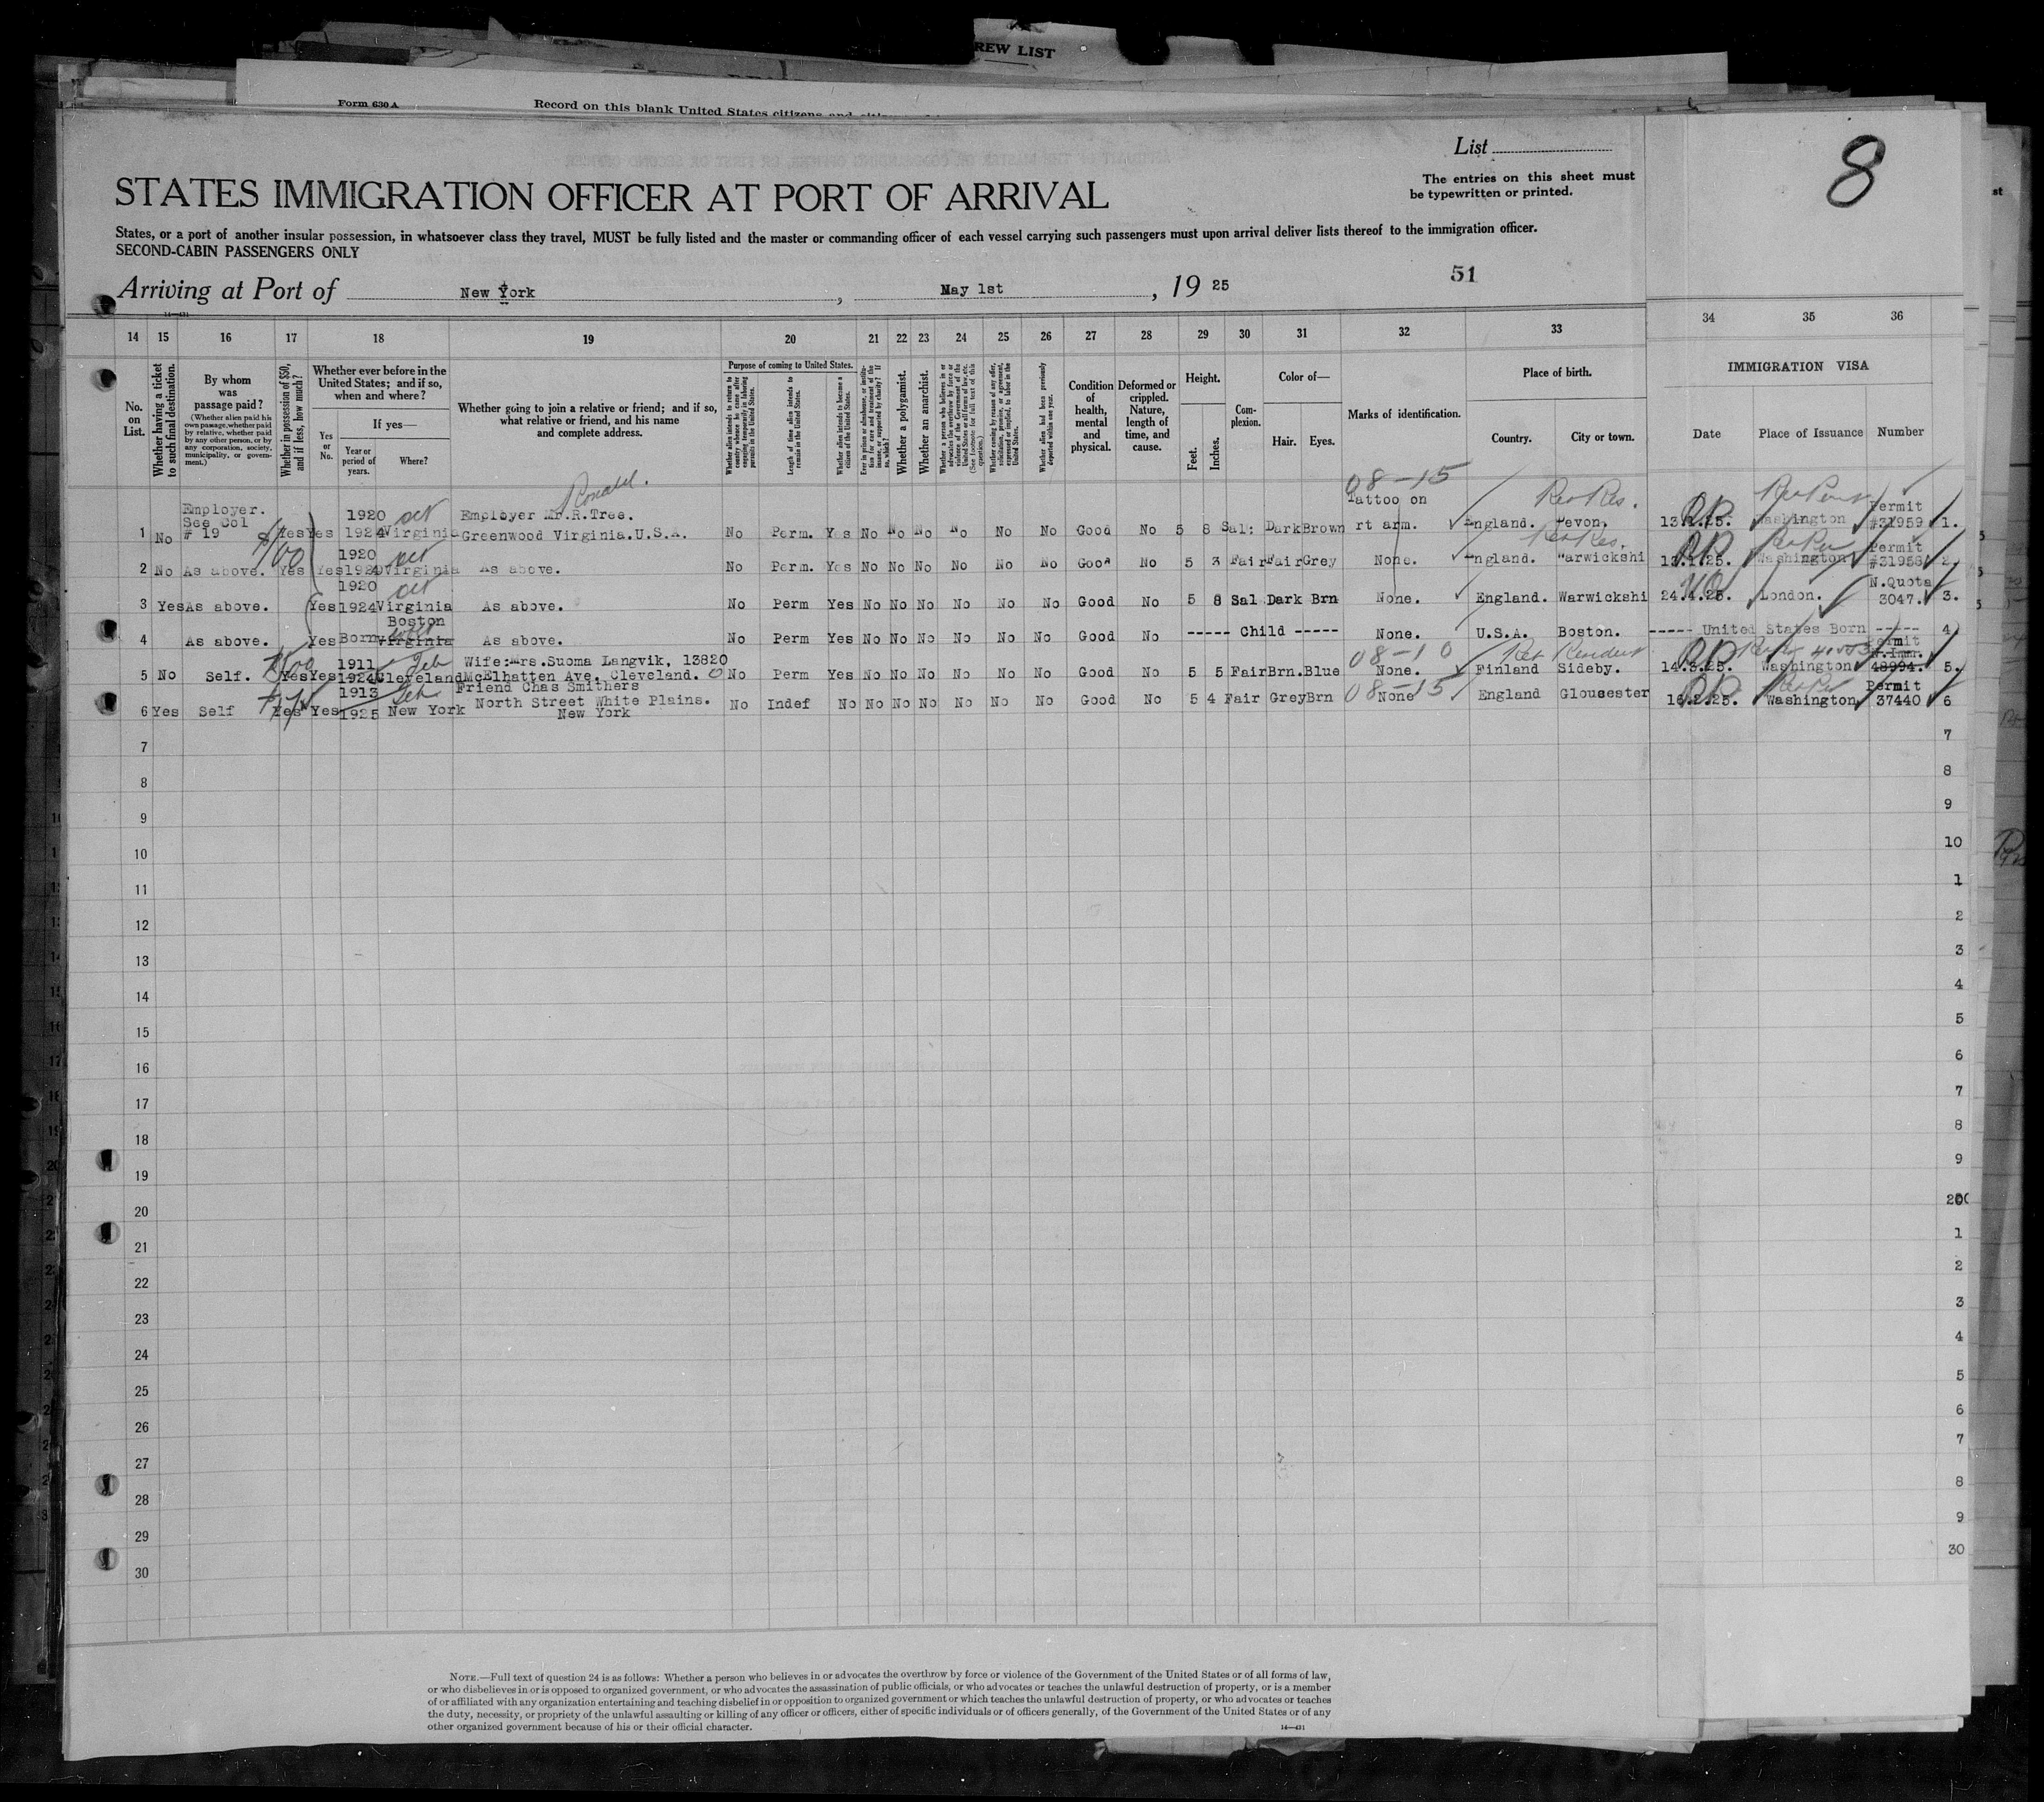 REW LIST
Form 630 A
Record on this blank United States citizens and
List
8
The entries on this sheet must
be typewritten or printed.
STATES IMMIGRATION OFFICER AT PORT OF ARRIVAL
States, or a port of another insular possession, in whatsoever class they travel, MUST be fully listed and the master or commanding officer of each vessel carrying such passengers must upon arrival deliver lists thereof to the immigration officer.
SECOND-CABIN PASSENGERS ONLY
51
Arriving at Port of New York, May 1st, 19 25
14—431
14 15 16 17 18 19 20 21 22 23 24 25 26 27 28 29 30 31 32 33 34 35 36
No. on List.
Whether having a ticket to such final destination.
By whom was passage paid?
(Whether alien paid his own passage, whether paid by relative, whether paid by any other person, or by any corporation, society, municipality, or government.)
Whether in possession of $50, and if less, how much?
Whether ever before in the United States; and if so, when and where?
Yes or No.
If yes—
Year or period of years.
Where?
Whether going to join a relative or friend; and if so, what relative or friend, and his name and complete address.
Purpose of coming to United States.
Whether alien intends to return to country whence he came after engaging temporarily in laboring pursuits in the United States.
Length of time alien intends to remain in the United States.
Whether alien intends to become a citizen of the United States.
Ever in prison or almshouse, or institution for care and treatment of the insane, or supported by charity? If so, which?
Whether a polygamist.
Whether an anarchist.
Whether a person who believes in or advocates the overthrow by force or violence of the Government of the United States or all forms of law, etc. (See footnote for full text of this question.)
Whether coming by reason of any offer, solicitation, promise, or agreement, expressed or implied, to labor in the United States.
Whether alien had been previously deported within one year.
Condition of health, mental and physical.
Deformed or crippled. Nature, length of time, and cause.
Height.
Feet. Inches.
Complexion.
Color of—
Hair. Eyes.
Marks of identification.
Place of birth.
Country. City or town.
IMMIGRATION VISA
Date Place of Issuance Number
Ronald.
08-15
Res Res.
1 No Employer. See Col # 19 $100 Yes Yes 1920 1924 Oct Virginia Employer Mr.R.Tree. Greenwood Virginia.U.S.A. No Perm. Yes No No No No No No Good No 5 8 Sal: Dark Brown Tattoo on rt arm. England. Devon. 13.1.25. Washington Permit #31959 1.
2 No As above. Yes Yes 1920 1924 Oct Virginia As above. No Perm. Yes No No No No No No Good No 5 3 Fair Fair Grey None. England. Warwickshi 13.1.25. Washington Permit #31958 2.
3 Yes As above. Yes 1920 1924 Oct Virginia As above. No Perm Yes No No No No No No Good No 5 8 Sal Dark Brn None. England. Warwickshi 24.4.25. London. N.Quota 3047. 3.
4 As above. Yes Born Boston Virginia As above. No Perm Yes No No No No No No Good No ----- Child ----- None. U.S.A. Boston. ----- United States Born ----- 4
08-10
5 No Self. $100 Yes Yes 1911 1924 Feb Cleveland Wife:Mrs.Suoma Langvik, 13820 McElhatten Ave. Cleveland. O No Perm Yes No No No No No No Good No 5 5 Fair Brn. Blue None. Finland Sideby. 14.3.25. Washington Permit N.Imm. 48994. 5.
08-15
6 Yes Self Yes Yes 1913 1925 Feb New York Friend Chas Smithers North Street White Plains. New York No Indef No No No No No No No Good No 5 4 Fair Grey Brn None England Gloucester 16.2.25. Washington Permit 37440 6
7 7
8 8
9 9
10 10
11 1
12 2
13 3
14 4
15 5
16 6
17 7
18 8
19 9
20 20
21 1
22 2
23 3
24 4
25 5
26 6
27 7
28 8
29 9
30 30
NOTE.—Full text of question 24 is as follows: Whether a person who believes in or advocates the overthrow by force or violence of the Government of the United States or of all forms of law,
or who disbelieves in or is opposed to organized government, or who advocates the assassination of public officials, or who advocates or teaches the unlawful destruction of property, or is a member
of or affiliated with any organization entertaining and teaching disbelief in or opposition to organized government or which teaches the unlawful destruction of property, or who advocates or teaches
the duty, necessity, or propriety of the unlawful assaulting or killing of any officer or officers, either of specific individuals or of officers generally, of the Government of the United States or of any
other organized government because of his or their official character.
14—431